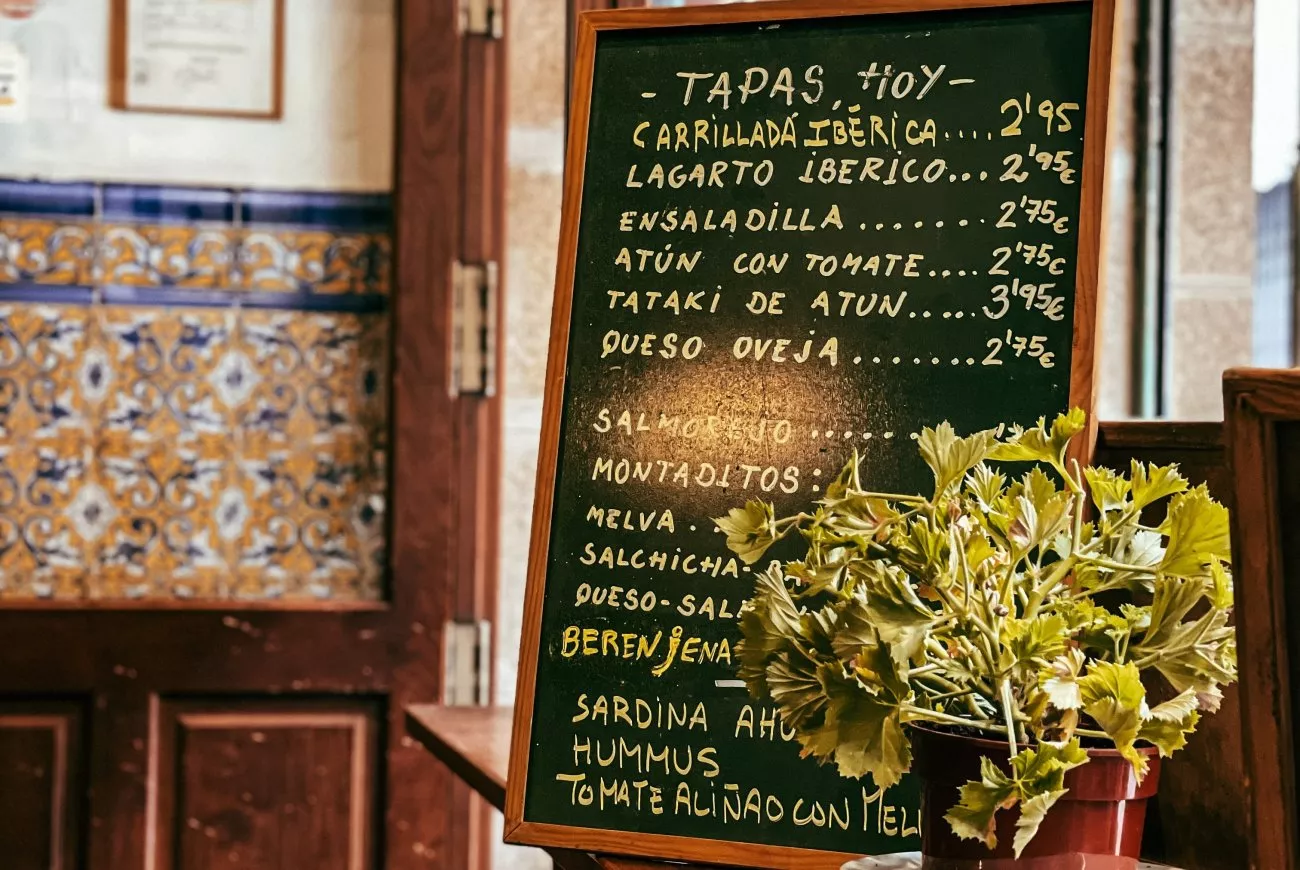 - TAPAS, HOY -
CARRILLADA IBÉRICA.... 2'95
LAGARTO IBERICO... 2'95€
ENSALADILLA ....... 2'75€
ATÚN CON TOMATE.... 2'75€
TATAKI DE ATUN..... 3'95€
QUESO OVEJA ....... 2'75€
SALMOREJO .....
MONTADITOS:
MELVA .
SALCHICHA-
QUESO-
BERENJENA
SARDINA
HUMMUS
TOMATE ALIÑAO CON